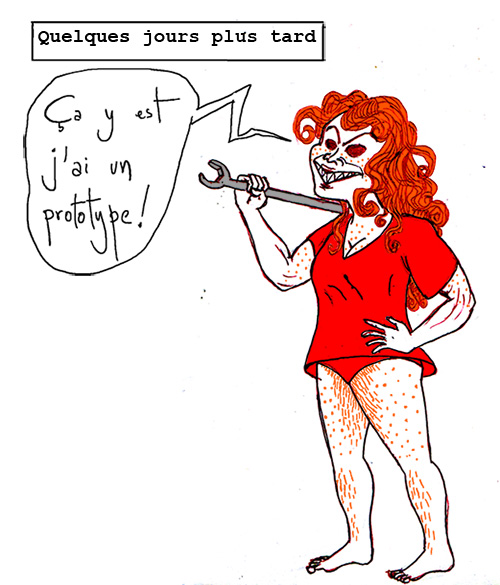 Quelques jours plus tard
Ça y est
j'ai un
prototype!